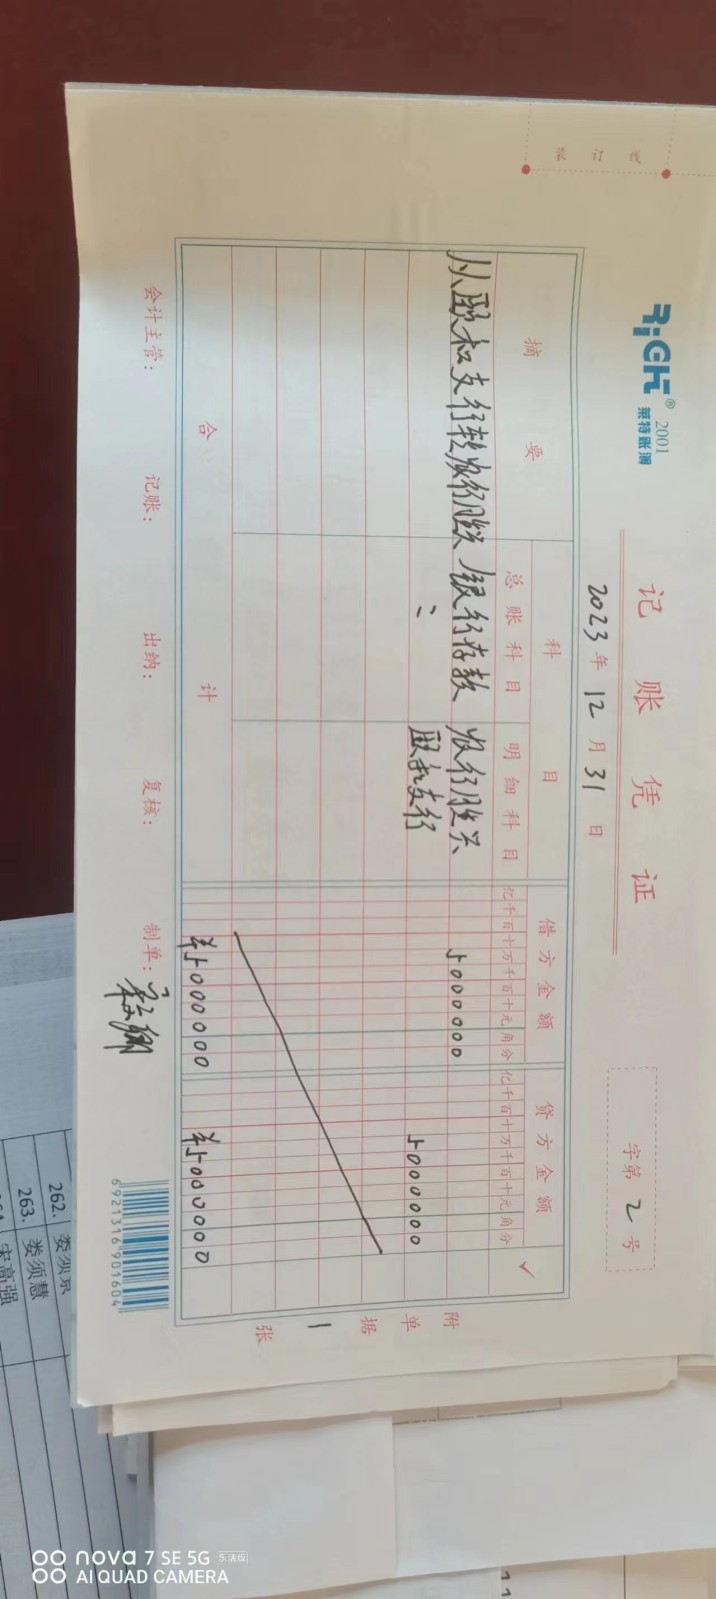 装 订 线
RiGHT® 2001
莱特账簿
记 账 凭 证
2023 年 12 月 31 日
字第 2 号
摘 要
科 目
借 方 金 额
贷 方 金 额
✓
总 账 科 目
明 细 科 目
亿千百十万千百十元角分
亿千百十万千百十元角分
从颐和支行转农行胜兴
银行存款
农行胜兴
5000000
〃
颐和支行
5000000
合 计
¥5000000
¥5000000
附 单 据 1 张
会计主管:
记账:
出纳:
复核:
制单:
6921316901604
262.
263. 娄须慧
宋高强
nova 7 SE 5G 乐活版
AI QUAD CAMERA